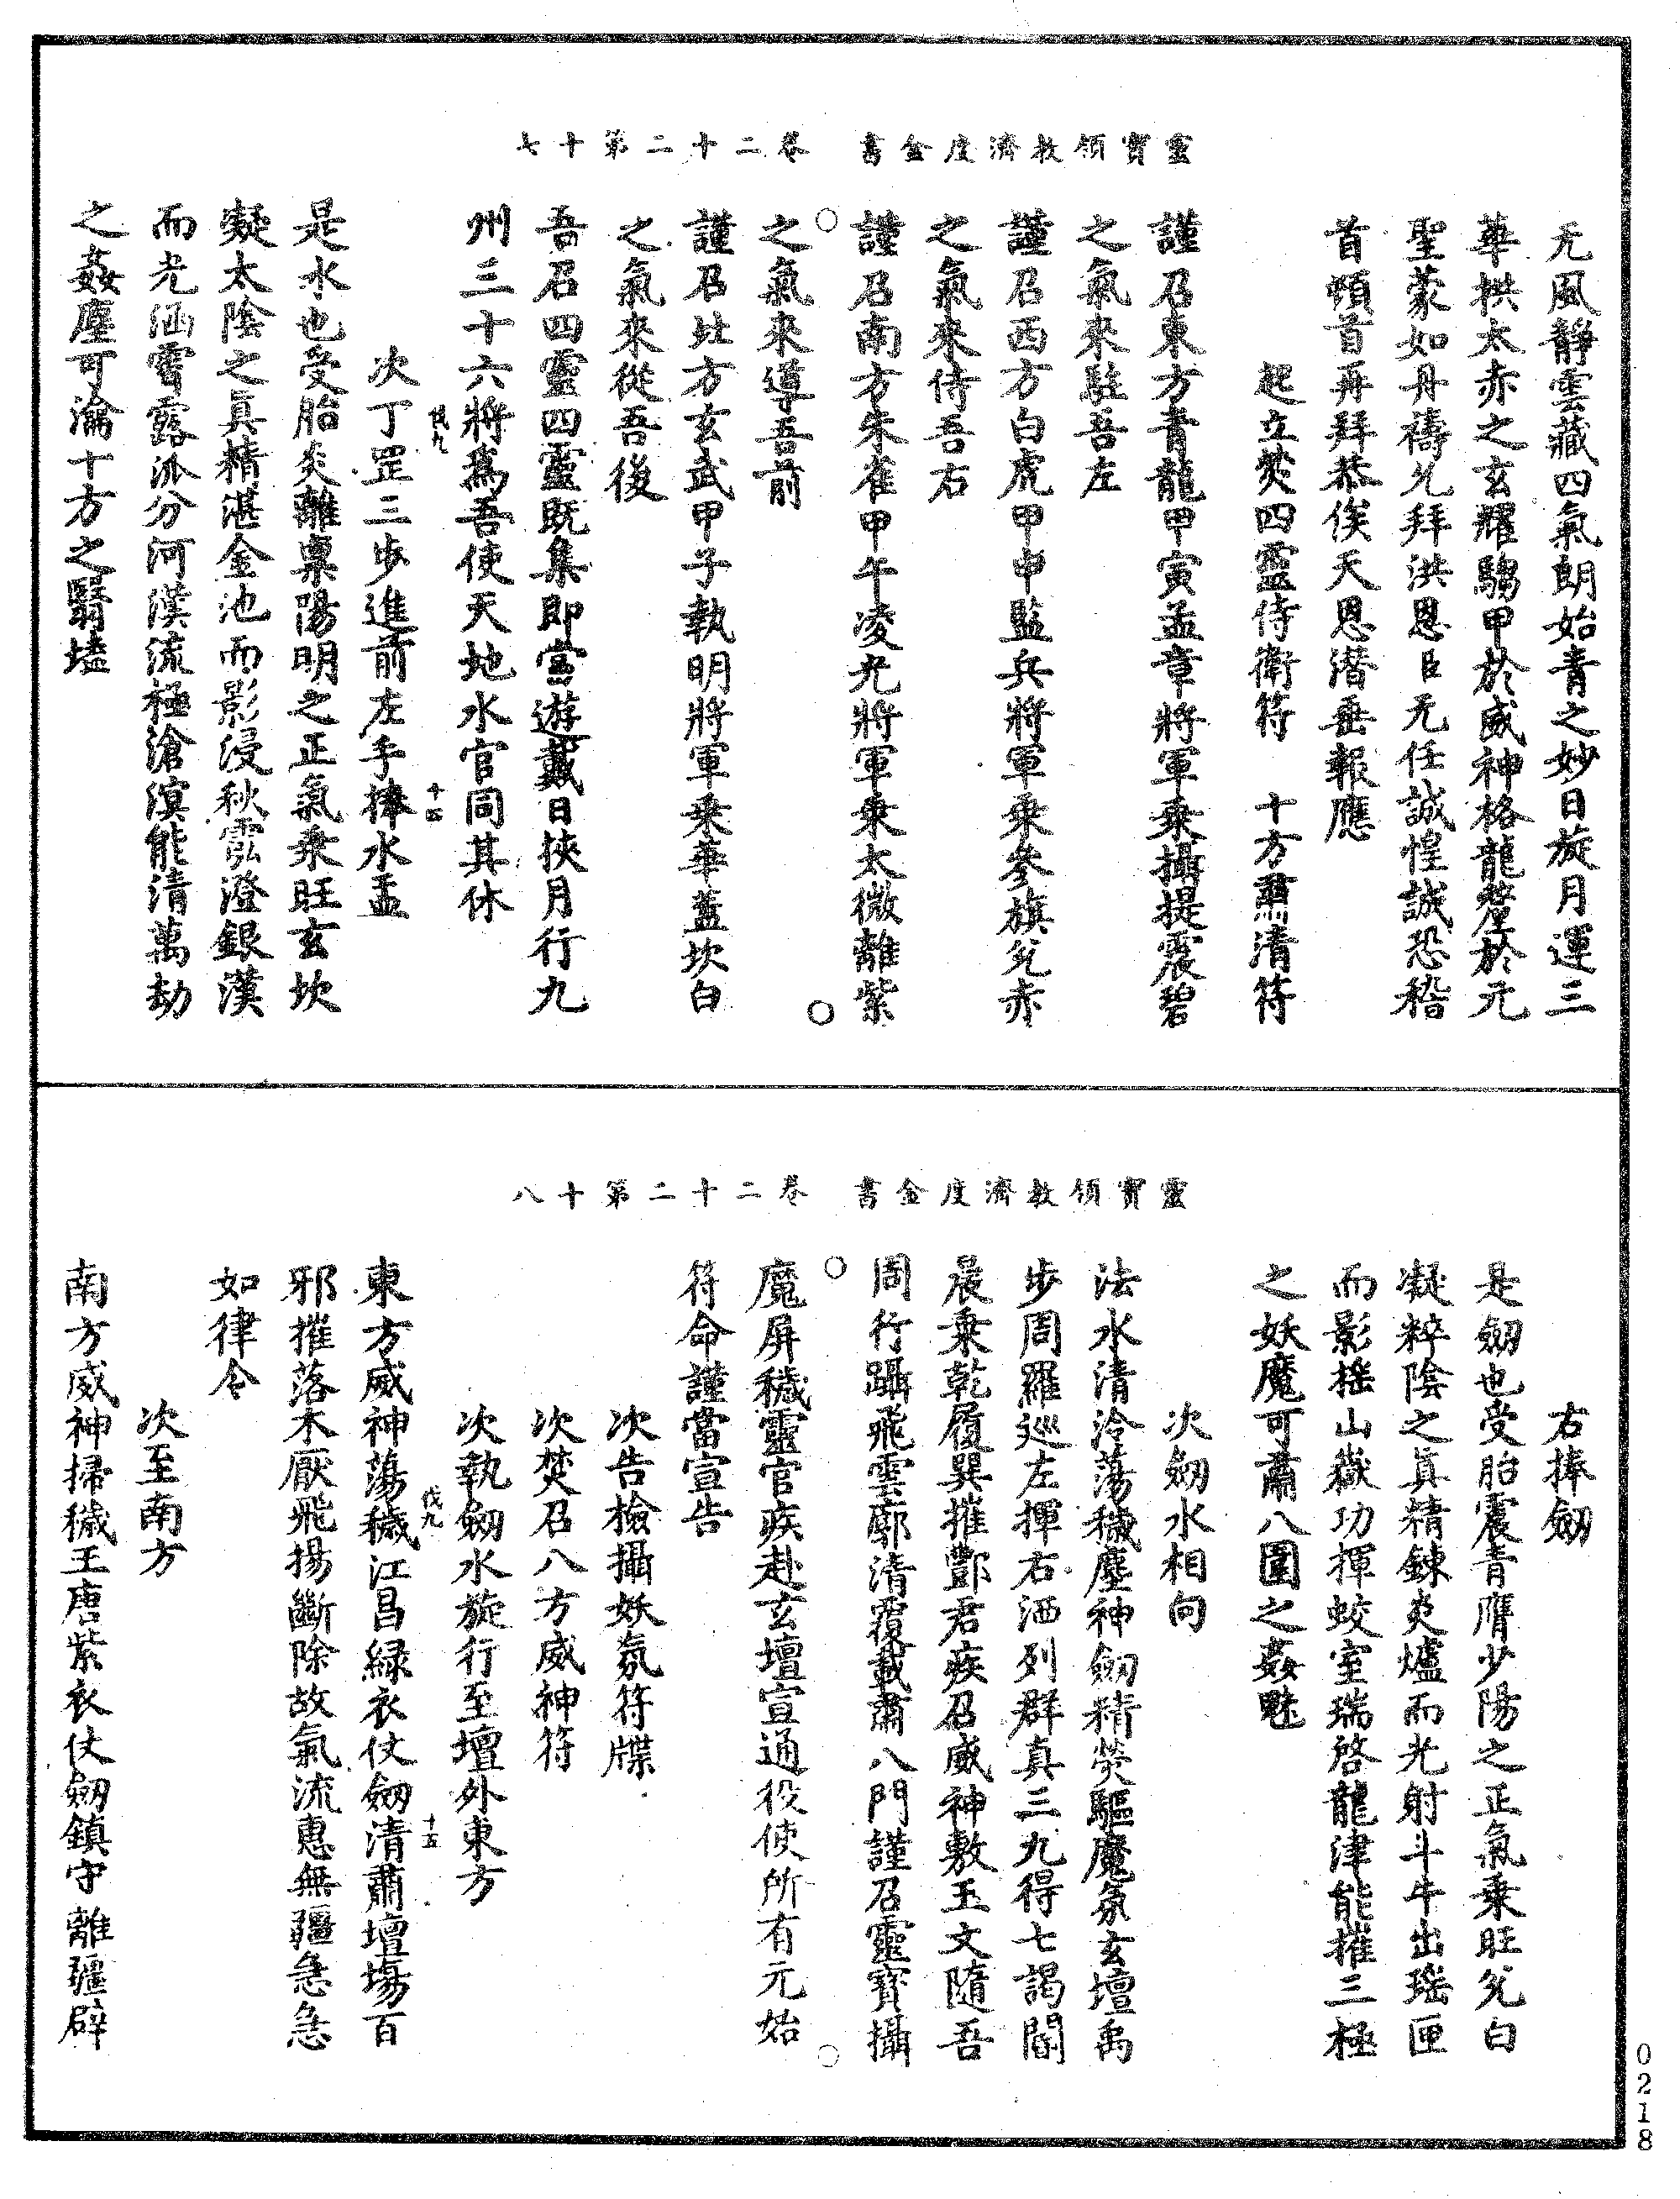 靈寶領教濟度金書　卷二十二第十七
无風靜雲藏四氣朗始青之妙日旋月運三
華拱太赤之玄耀騶甲於威神格龍犛於元
聖蒙如丹禱允拜洪恩臣无任誠惶誠恐稽
首頓首再拜恭俟天恩潛垂報應
起立焚四靈侍衛符　十方肅清符
謹召東方青龍甲寅孟章將軍乗攝提震碧
之氣來駐吾左
謹召西方白虎甲申監兵將軍乗參旗兊赤
之氣來侍吾右
謹召南方朱雀甲午凌光將軍乗太微離紫
之氣來導吾前
謹召北方玄武甲子執明將軍乗華蓋坎白
之氣來從吾後
吾召四靈四靈既集即當遊戴日挾月行九
州三十六將爲吾使天地水官同其休
伐九　十四
次丁罡三步進前左手捧水盂
是水也受胎炎離稟陽明之正氣乗旺玄坎
凝太陰之真精湛金池而影浸秋澐澄銀漢
而光涵霄露派分河漢流極滄溟能清萬劫
之姦塵可瀹十方之翳壒
靈寶領教濟度金書　卷二十二第十八
右捧劒
是劒也受胎震青膺少陽之正氣乗旺兊白
凝粹陰之真精鍊炎爐而光射斗牛出瑶匣
而影搖山嶽功揮蛟室瑞啓龍津能摧三極
之妖魔可肅八圍之姦魅
次劒水相向
法水清泠蕩穢塵神劒精熒驅魔氛玄壇禹
步周羅巡左揮右洒列群真三九得七謁閶
晨乗乾履巽摧酆君疾召威神敷玉文隨吾
周行躡飛雲廓清覆載肅八門謹召靈寶攝
魔屏穢靈官疾赴玄壇宣通役使所有元始
符命謹當宣告
次告檢攝妖氛符牒
次焚召八方威神符
次執劒水旋行至壇外東方
伐九　十五
東方威神蕩穢江昌緑衣仗劒清肅壇場百
邪摧落木厭飛揚斷除故氣流惠無疆急急
如律令
次至南方
南方威神掃穢王唐紫衣仗劒鎮守離疆辟
0218